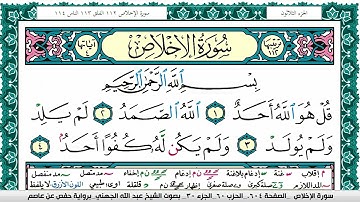 الجزء الثلاثون
سورة الإخلاص ١١٢ الفلق ١١٣ الناس ١١٤
سُورَةُ الإِخْلَاصِ
بِسْمِ اللَّهِ الرَّحْمَٰنِ الرَّحِيمِ
قُلْ هُوَ اللَّهُ أَحَدٌ ١ اللَّهُ الصَّمَدُ ٢ لَمْ يَلِدْ
وَلَمْ يُولَدْ ٣ وَلَمْ يَكُن لَّهُ كُفُوًا أَحَدٌ ٤
سورة الإخلاص . الصفحة ٦٠٤ . الحزب ٦٠ . الجزء ٣٠ . بصوت الشيخ عبد الله الجهني . برواية حفص عن عاصم